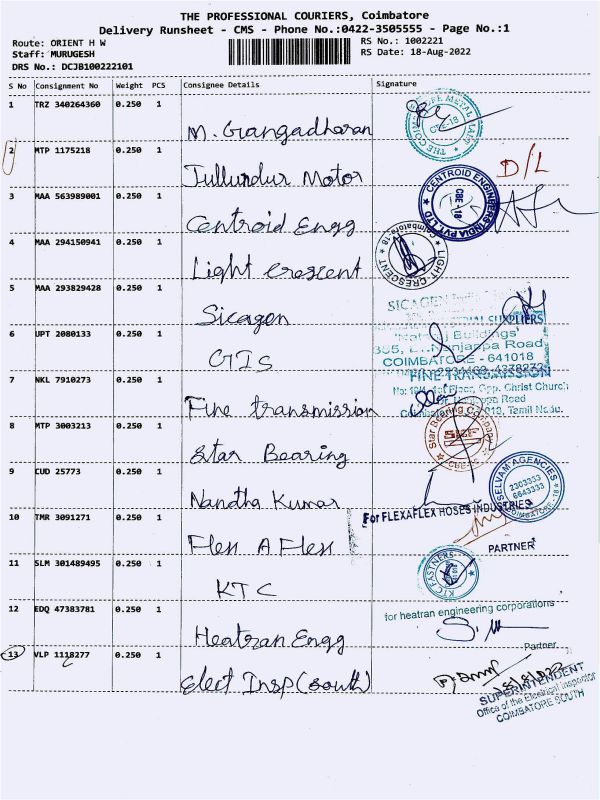 THE PROFESSIONAL COURIERS, Coimbatore
Delivery Runsheet - CMS - Phone No.:0422-3505555 - Page No.:1
Route: ORIENT H W
RS No.: 1002221
Staff: MURUGESH
RS Date: 18-Aug-2022
DRS No.: DCJB100222101
S No Consignment No Weight PCS Consignee Details Signature
1 TRZ 340264360 0.250 1 M. Gangadharan
2 MTP 1175218 0.250 1 Jullundur Motor D/L
3 MAA 563989001 0.250 1 Centroid Engg
CENTROID ENGINEERS INDIA PVT. LTD
CBE-18
4 MAA 294150941 0.250 1 Light crescent
LIGHT CRESCENT
Coimbatore-18
5 MAA 293829428 0.250 1 Sicagen
SICAGEN
SUPPLIERS
Buildings'
Nanjappa Road
COIMBATORE - 641018
6 UPT 2080133 0.250 1 GIS
7 NKL 7910273 0.250 1 Fine transmission
FINE TRANSMISSION
Opp. Christ Church
Road
018, Tamil Nadu.
8 MTP 3003213 0.250 1 Star Bearing
Star Bearing Company
9 CUD 25773 0.250 1 Nandha Kumar
SELVAM AGENCIES
2303333
6643333
COIMBATORE - 18
10 TMR 3091271 0.250 1 Flex A Flex
For FLEXAFLEX HOSES INDUSTRIES
PARTNER
11 SLM 301489495 0.250 1 KTC
KTC FASTNERS
12 EDQ 47383781 0.250 1 Heatran Engg
for heatran engineering corporations
Partner.
13 VLP 1118277 0.250 1 Elect Insp (south)
SUPERINTENDENT
Office of the Electrical Inspector
COIMBATORE SOUTH